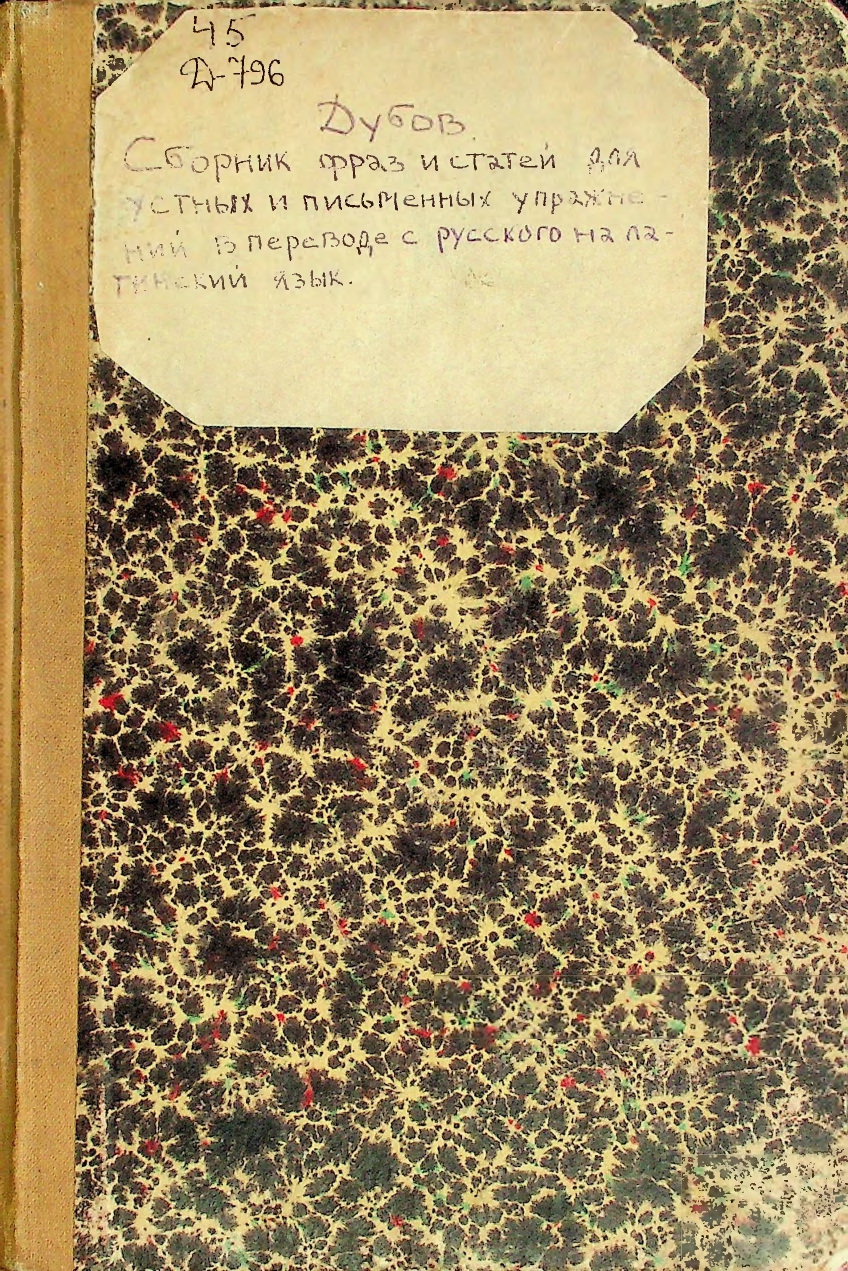 45
Д-796
Дубов
Сборник фраз и статей для
устных и письменных упражне-
ний в переводе с русского на ла-
тинский язык.